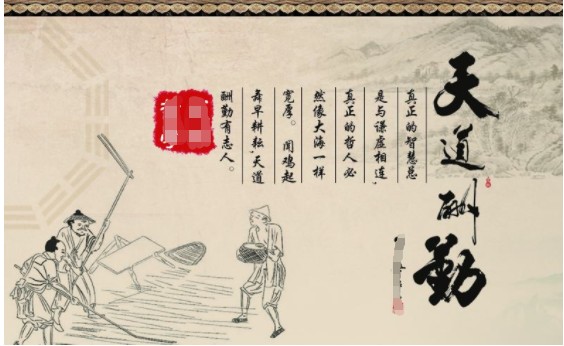 天道酬勤
真正的智慧总
是与谦虚相连,
真正的哲人必
然像大海一样
宽厚。 闻鸡起
舞早耕耘,天道
酬勤有志人。